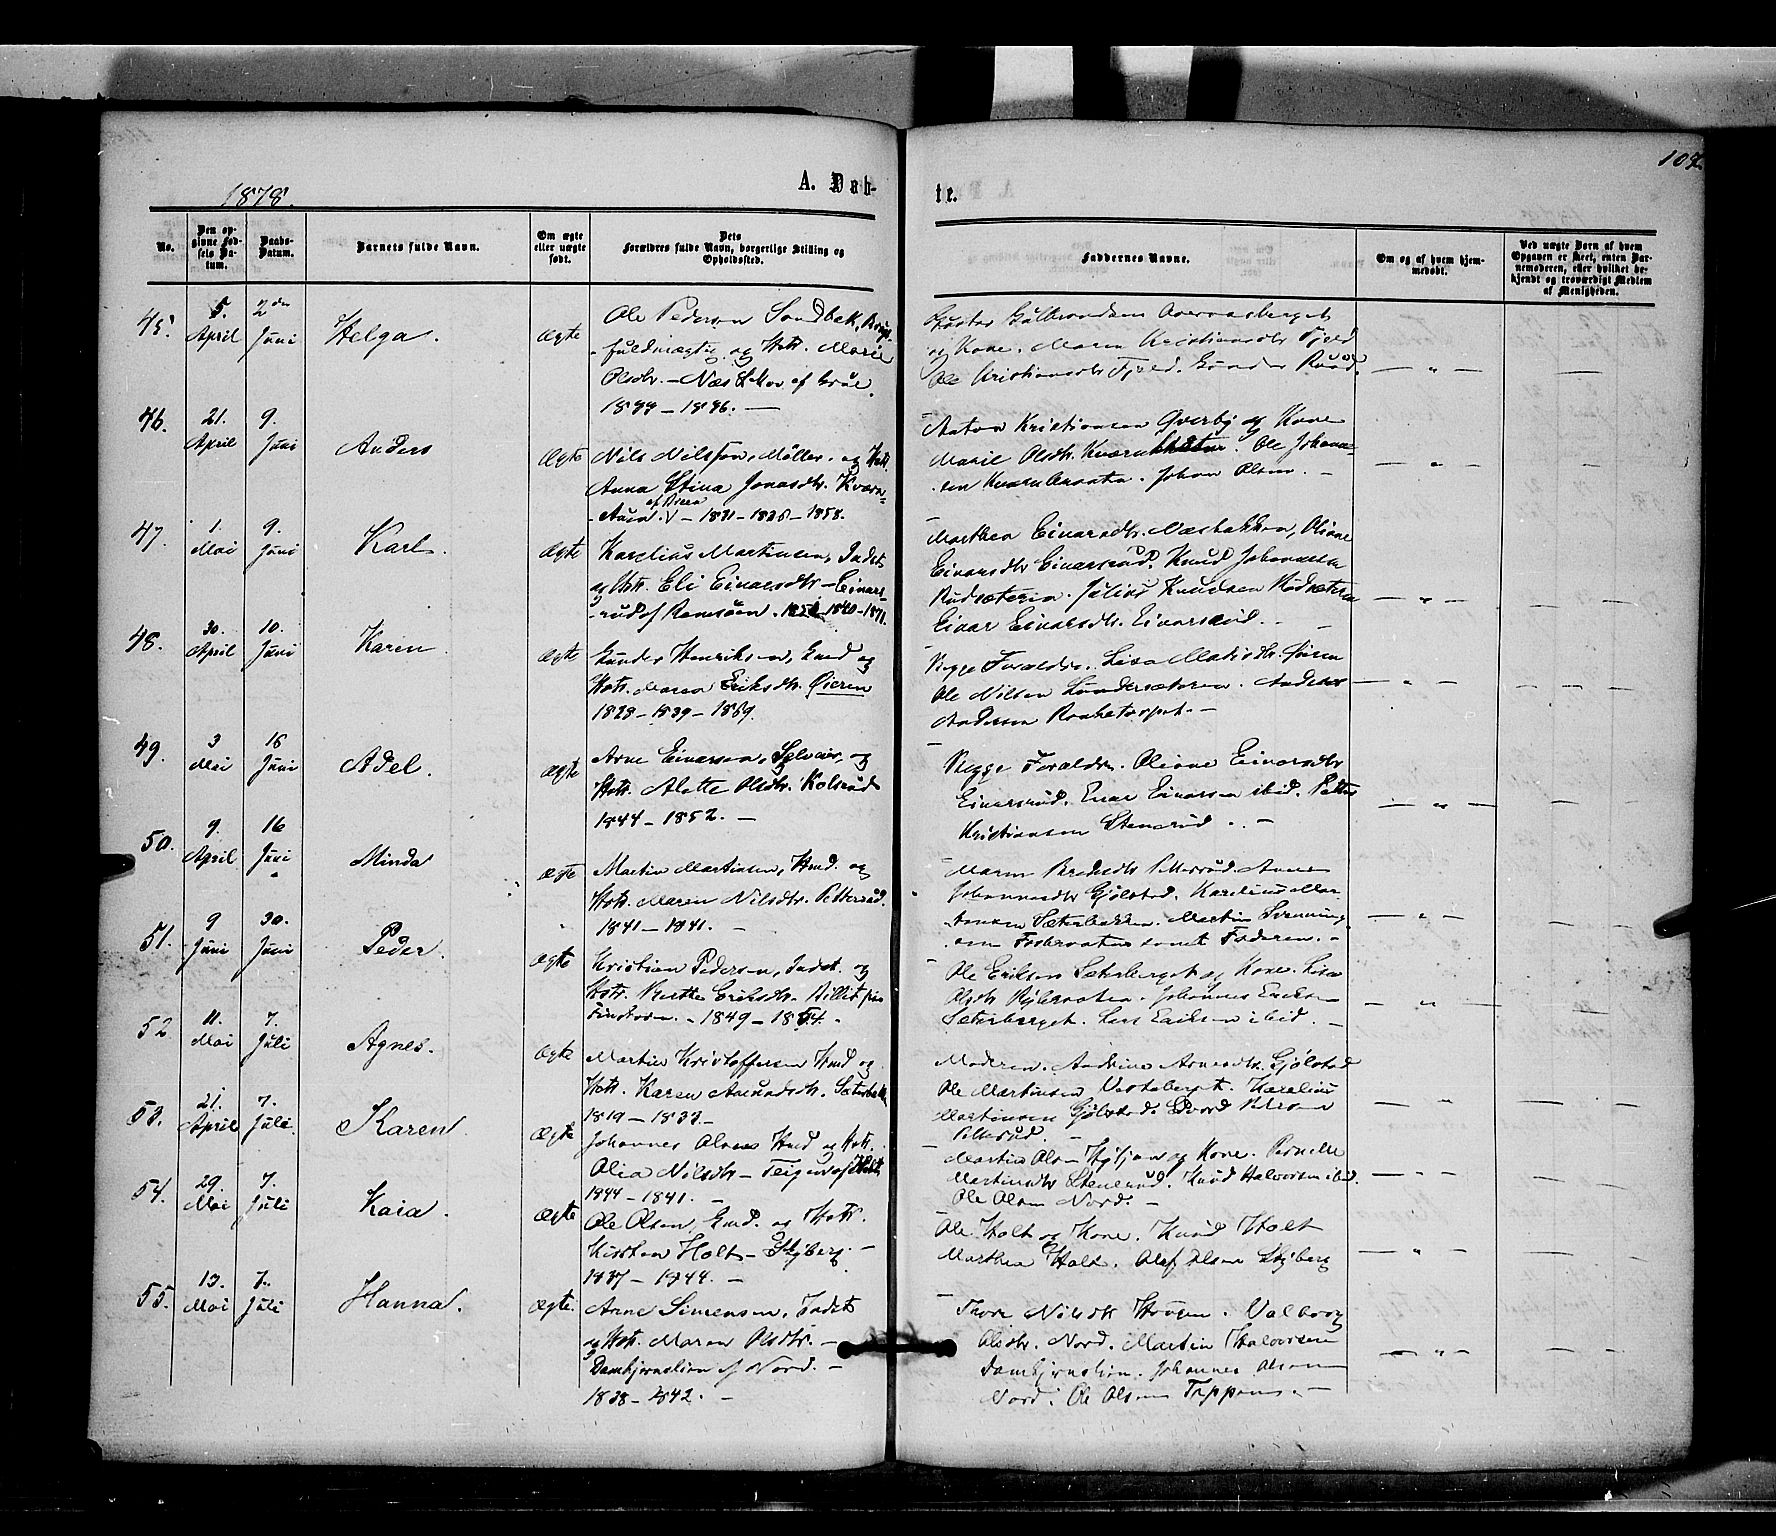 107.
1878.
A. Døb-
te.
No.
Den op-
givne Fød-
sels Da-
tum.
Daabs-
Datum.
Barnets fulde Navn.
Om ægte
eller uægte
født.
Dets
Forældres fulde Navn, borgerlige Stilling og
Opholdssted.
Faddernes Navne.
Om og af hvem hjem-
medøbt.
Ved uægte Børn af hvem
Opgaven er skeet, enten Bar-
nemoderen, eller hvilket be-
kjendt og troværdigt Medlem
af Menigheden.
45. 5. April 2den Juni Helga Ægte
Ole Pedersen Sandbek,
fuldmægtig og Hstr. Marie
Olsdtr. – Næs af Grue.
og Kone. Maren Kristiansdtr Fjeld
Ole Kristiansdtr Fjeld. Gunder Ruud.
46. 21. April 9. Juni Anders Ægte
Nils Nilsson, Møller, og Hstr.
Anna Stina Jonasdtr. Kværn-
1831 – 1835 – 1858.
Anton Kristiansen Qverby og Kone
Marie Olsdtr. Ole Johanne-
sen Kværnbraaten. Johan Olsen. –
47. 1. Mai 9. Juni Karl. Ægte
Karelius Martinsen, Indst.
og Hstr. Eli Einarsdtr – Einars-
rud af 1840 – 1871.
Marthea Einarsdtr. Næsbakken, Oliane
Einarsdtr Einarsrud. Knud Johannesen
Rudsæteren. Julius Knudsen Rudsæteren
Einar Einarsdtr. Einarsrud. –
48. 30. April 10. Juni Karen Ægte
Gunder Henriksen, Gmd og
Hstr. Maren Eriksdtr. Øieren
1828 – 1839 – 1869.
Begge Forældre. Lisa Madisdtr. Øieren
Ole Nilsen Lundersæteren. Andreas
Andersen –
49. 3 Mai 16 Juni Adel. Ægte
Arne Einarsen, Selveier, og
Hstr. Alette Olsdtr. Kolsrud
1844 – 1852. –
Begge Forældre. Oliane Einarsdtr
Einarsrud. Einar Einarsen ibid. Petter
Kristiansen Stenerud. –
50. 9. April 16 Juni Minda Ægte
Martin Martinsen, Hmd. og
Hstr. Maren Nilsdtr. Pettersrud.
1841 – 1841. –
Maren Pettersrud. Anne
Johannesdtr Gjølstad. Karelius Mar-
tinsen Sæterbakken. Martin Svenning-
sen samt Faderen. –
51. 9 Juni 30. Juni Peder. Ægte
Kristian Pedersen, Indst. og
Hstr. Berthe Eriksdtr.
– 1849 – 1854. –
Ole Eriksen Sæterberget og Kone. Lisa
Olsdtr Johannes Eriksen
Sæterberget. Lars Eriksen ibid. –
52 11. Mai 7. Juli Agnes. Ægte
Martin Kristoffersen Hmd og
Hstr. Karen Amundsdtr. Sæterbakk.
1819 – 1833 –
Moderen. Andrine Arnesdtr. Gjølstad
Ole Martinsen Vestaberget. Karelius
Martinsen Gjølstad. Edvard Petersen
Pettersrud. –
53. 21. April 7. Juli. Karen. Ægte
Johannes Olsen Hmd og Hstr.
Olia Nilsdtr – Teigen af Holt.
1844 – 1841. –
Martin Olsen og Kone. Pernelle
Martinsdtr Stenerud. Knud Halvorsen ibid.
Ole Olsen Nord. –
54. 29. Mai 7. Juli Kaia. Ægte
Ole Olsen, Gmd. og Hstr.
Kirsten Holt – Skyberg. –
1837 – 1844. –
Ole Holt og Kone. Knud Holt
Marthea Holt. Olaf Olsen Skyberg
55. 13. Mai 7. Juli Hanna. Ægte.
Arne Simensen, Indst
og Hstr. Maren Olsdtr. –
Damtjernslien af Nord. –
1838 – 1842. –
Thore Nilsdtr Haugen. Valborg
Olsdtr. Nord. Martin Halvorsen
Damtjernslien. Johannes Olsen
Nord. Ole Olsen Tappen. –